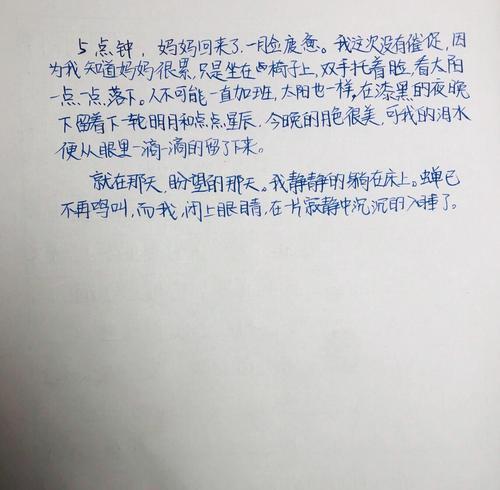 5点钟，妈妈回来了，一脸疲惫。我这次没有催促，因
为我知道妈妈很累，只是坐在椅子上，双手托着脸，看太阳
一点一点落下。人不可能一直加班，太阳也一样，在漆黑的夜晚
下留着下一轮明月和点点星辰，今晚的月色很美，可我的泪水
便从眼里一滴一滴的留了下来。
就在那天，盼望的那天。我静静的躺在床上。蝉已
不再鸣叫，而我，闭上眼睛，在片寂静中沉沉的入睡了。